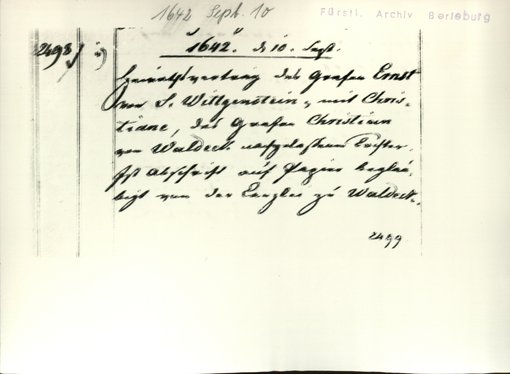 1642 Sept. 10
Fürstl. Archiv Berleburg
2498
"1642." d. 10. Sept.
Heirathsvertrag des Grafen Ernst
von S. Wittgenstein, mit Chris-
tiane, des Grafen Christian
von Waldeck nachgelassenen Tochter.
Ist Abschrift auf Papier beglau-
bigt von der Canzlei zu Waldeck.
2499